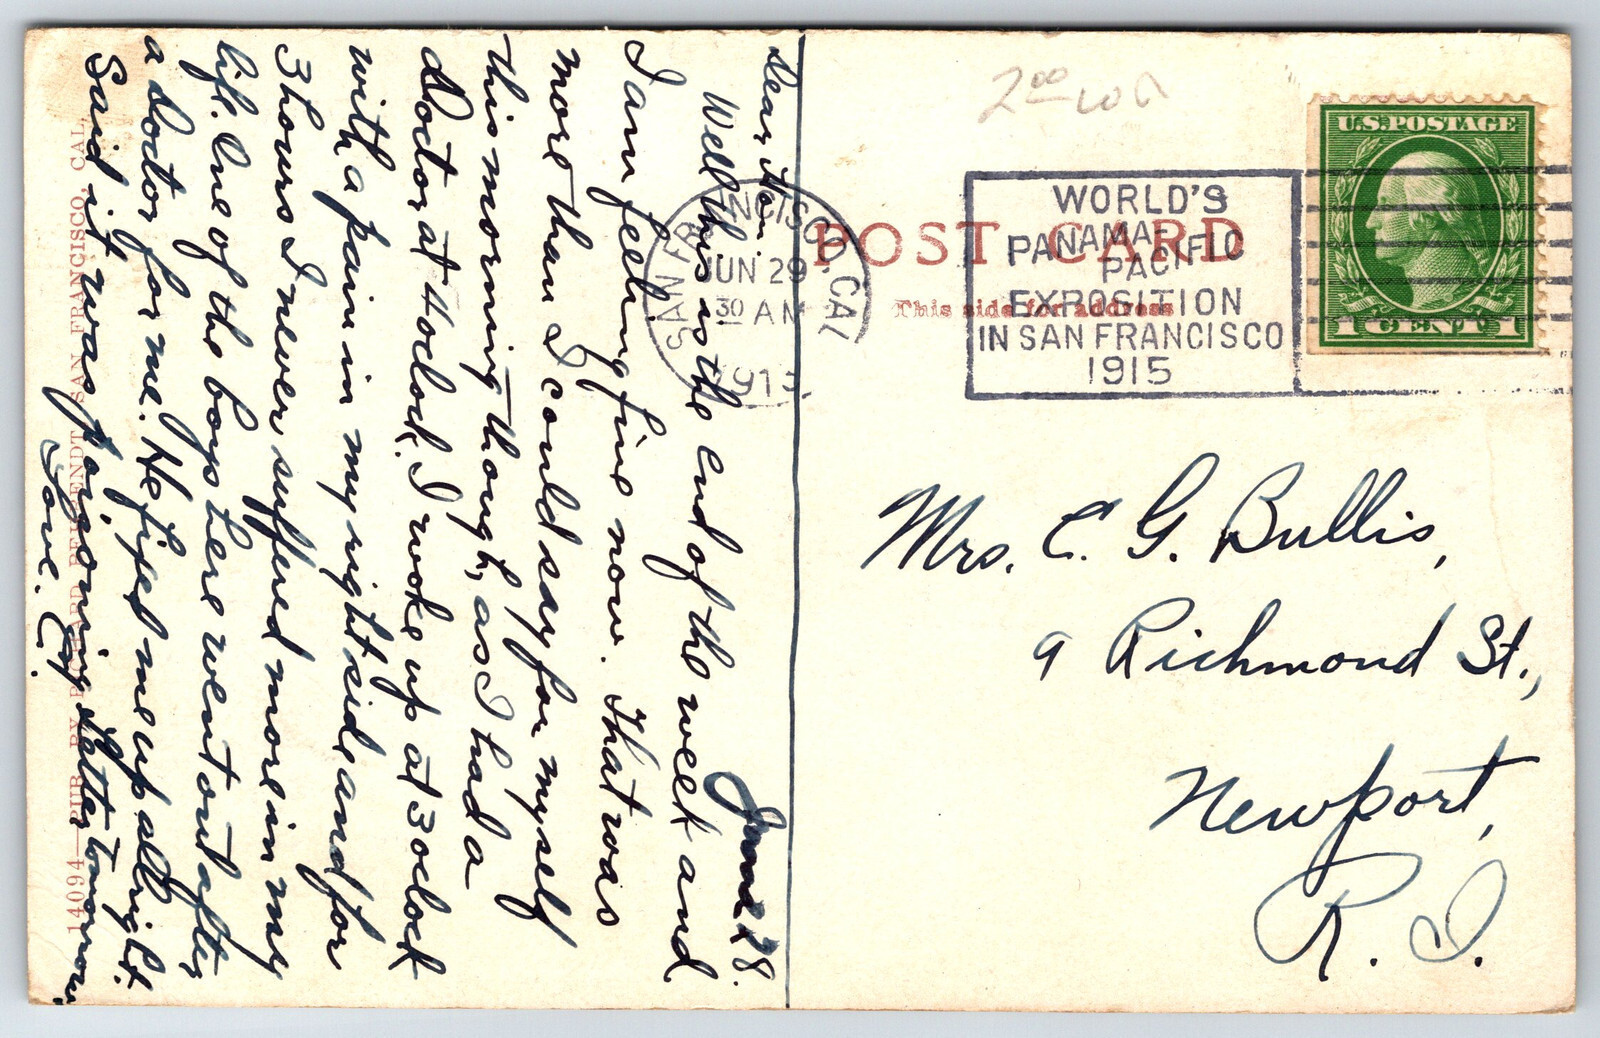 June 28.
Dear Hon.
Well this is the end of the week and
I am feeling fine now. That was
more than I could say for myself
this morning though, as I had a
doctor at 4 oclock. I woke up at 3 oclock
with a pain in my right side and for
3 hours I never suffered more in my
life. One of the boys here went out after
a doctor for me. He fixed me up all right.
Said it was poisoning. Letter tomorrow.
Love. C.
14094—PUB. BY RICHARD BEHRENDT, SAN FRANCISCO, CAL.
2⁰⁰
SAN FRANCISCO, CAL
JUN 29
30 AM
1915
WORLD'S
PANAMA-
PACIFIC
EXPOSITION
IN SAN FRANCISCO
1915
U.S. POSTAGE
1 CENT 1
POST CARD
This side for address
Mrs. C. G. Bullis,
9 Richmond St.,
Newport,
R. I.